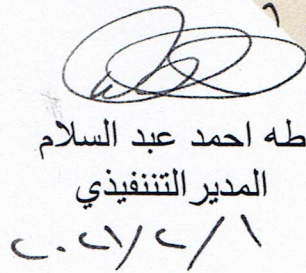 طه احمد عبد السلام
المدير التننفيذي
٢٠٢١/٢/١